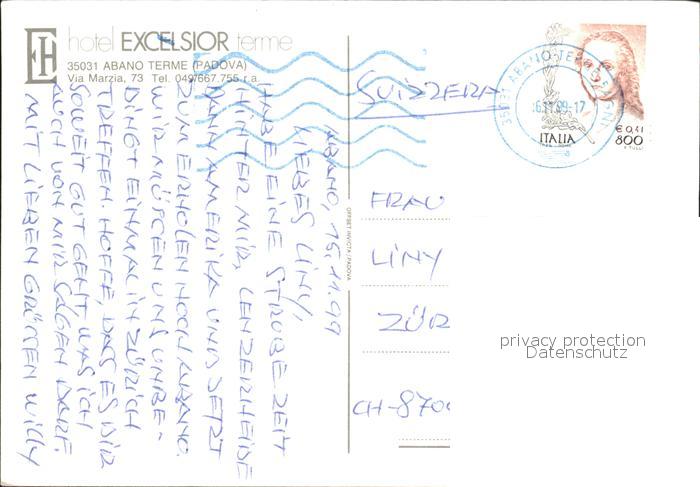 hotel EXCELSIOR terme
35031 ABANO TERME (PADOVA)
Via Marzia, 73 Tel. 049/667.755 r.a.
ABANO, 15.11.99
LIEBES LINY,
HABE EINE STRUBE ZEIT
HINTER MIR, LENZERHEIDE
DANN AMERIKA UND JETZT
ZUM ERHOLEN NOCH ABANO.
WIR MÜSSEN UNS UNBE-
DINGT EINMAL IN ZÜRICH
TREFFEN. HOFFE, DASS ES DIR
SOWEIT GUT GEHT WAS ICH
AUCH VON MIR SAGEN DARF.
MIT LIEBEN GRÜSSEN WILLY
OFFSET INVICTA / PADOVA
SVIZZERA
FRAU
LINY
ZÜR
CH-8700
35031 ABANO TERME
16.11.99-17
ITALIA
€ 0,41
800
privacy protection
Datenschutz